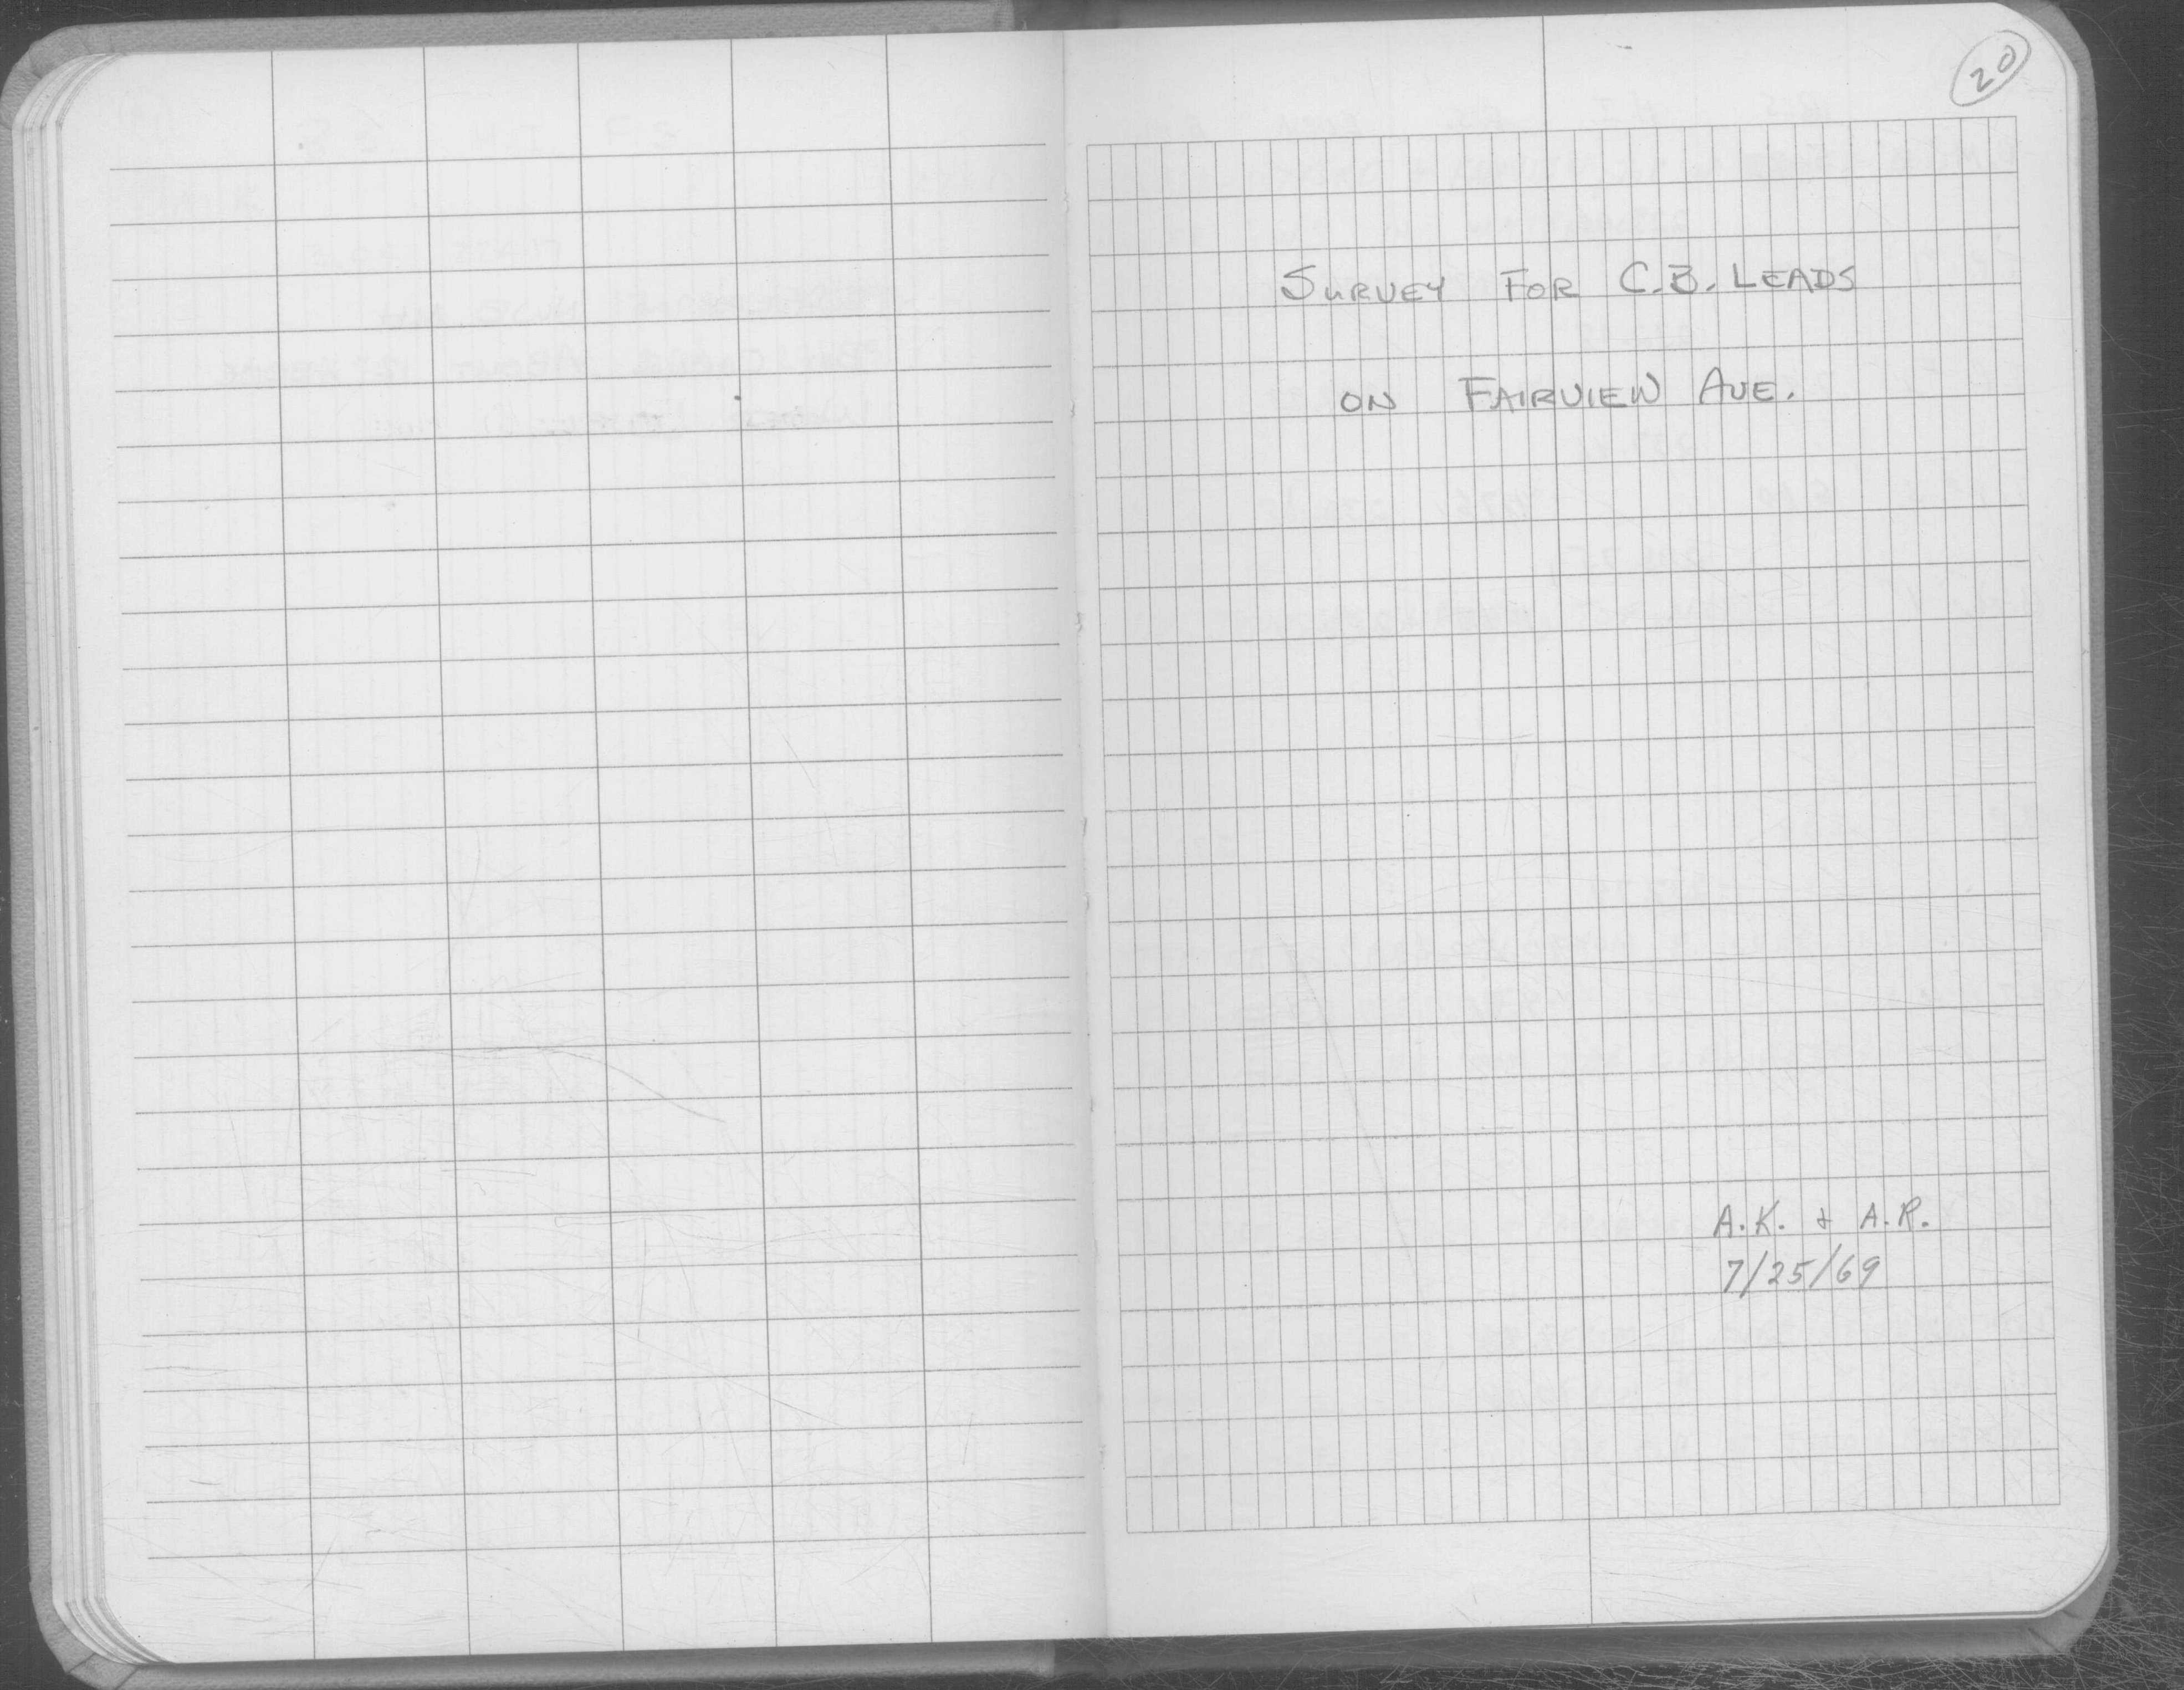 20
SURVEY FOR C.B. LEADS
ON FAIRVIEW AVE.
A.K. & A.R.
7/25/69